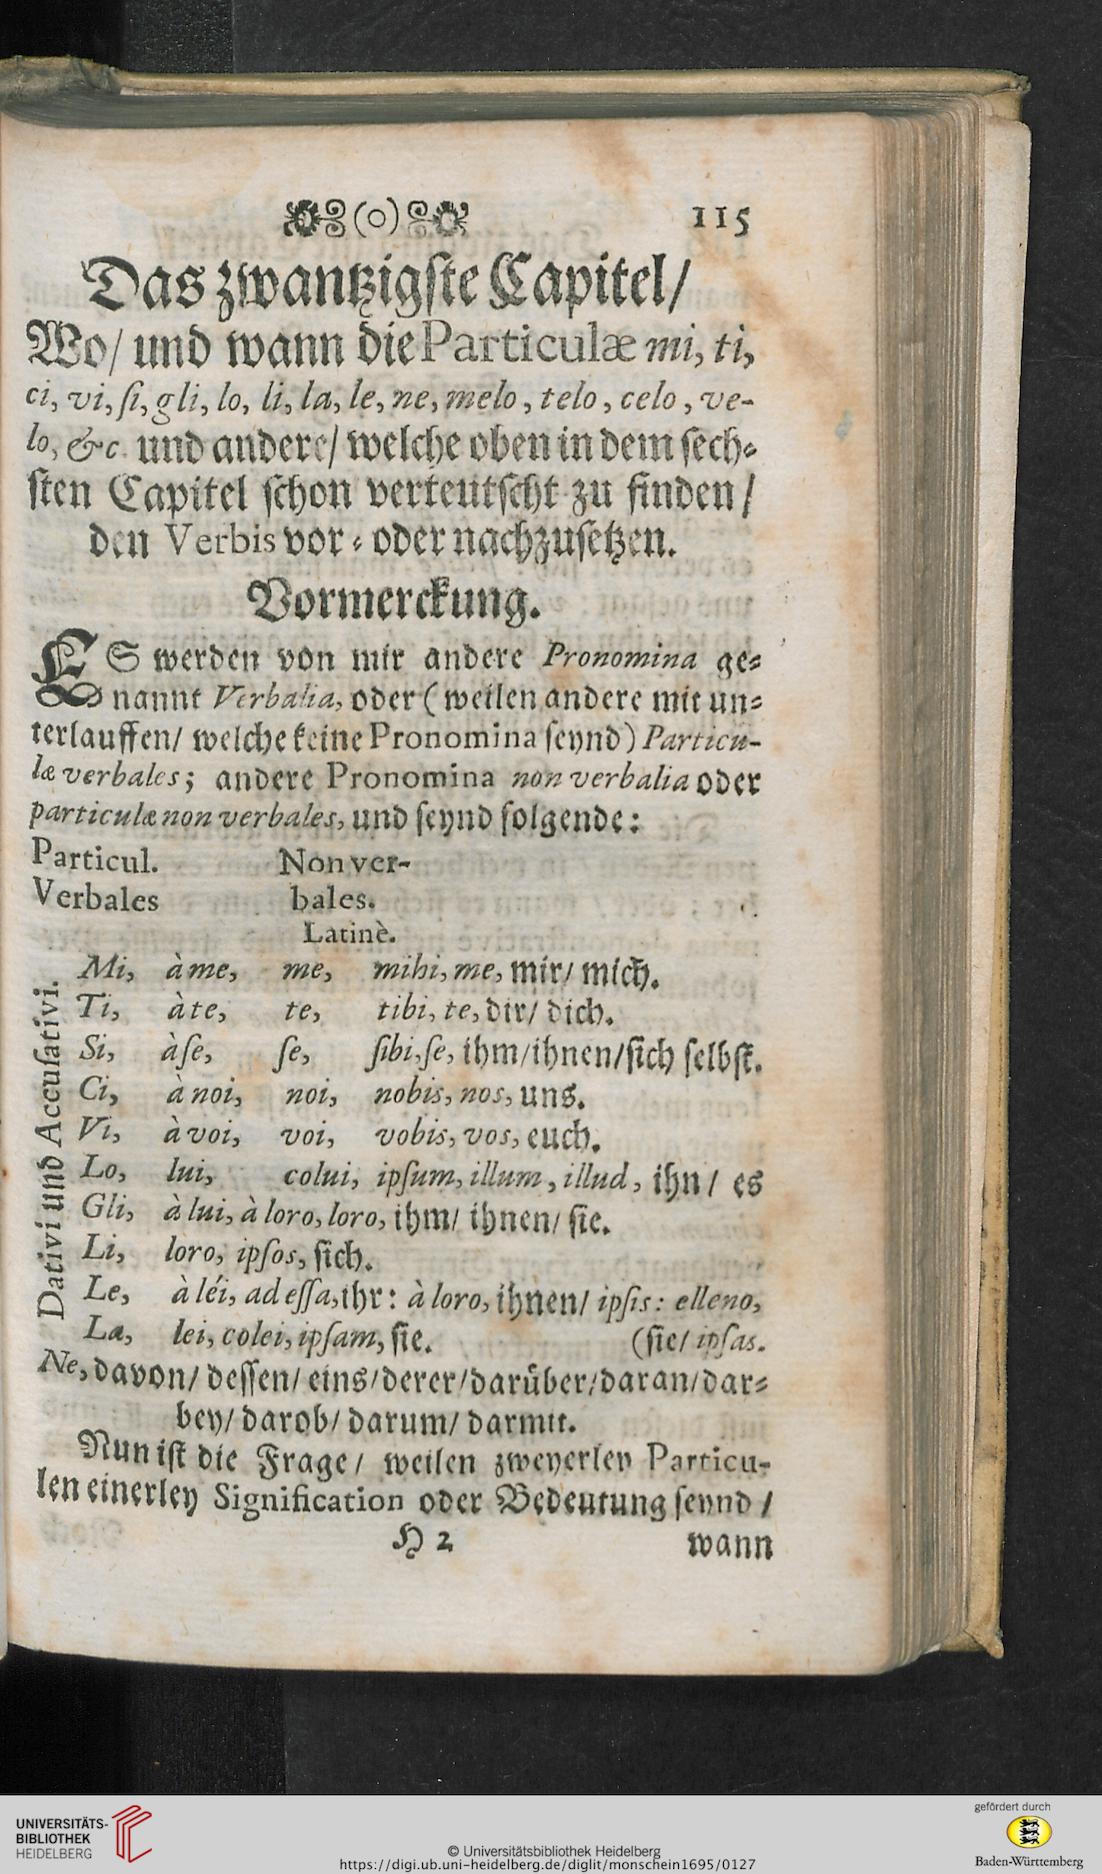 (o) 115
Das zwantzigste Capitel/
Wo/ und wann die Particulæ mi, ti,
ci, vi, ſi, gli, lo, li, la, le, ne, melo, telo, celo, ve-
lo, &c. und andere/ welche oben in dem ſech-
ſten Capitel ſchon verteutſcht zu finden/
den Verbis vor- oder nachzuſetzen.
Vormerckung.
ES werden von mir andere Pronomina ge-
nannt Verbalia, oder (weilen andere mit un-
terlauffen/ welche keine Pronomina ſeynd) Particu-
læ verbales; andere Pronomina non verbalia oder
particulæ non verbales, und ſeynd folgende:
Particul. Non ver-
Verbales bales.
Latinè.
Dativi und Accuſativi.
Mi, à me, me, mihi, me, mir/ mich.
Ti, à te, te, tibi, te, dir/ dich.
Si, à ſe, ſe, ſibi, ſe, ihm/ihnen/ſich ſelbſt.
Ci, à noi, noi, nobis, nos, uns.
Vi, à voi, voi, vobis, vos, euch.
Lo, lui, colui, ipſum, illum, illud, ihn/ es
Gli, à lui, à loro, loro, ihm/ ihnen/ ſie.
Li, loro, ipſos, ſich.
Le, à léi, ad eſſa, ihr: à loro, ihnen/ ipſis: elleno,
La, lei, colei, ipſam, ſie. (ſie/ ipſas.
Ne, davon/ deſſen/ eins/derer/darüber/daran/dar-
bey/ darob/ darum/ darmit.
Nun iſt die Frage/ weilen zweyerley Particu-
len einerley Signification oder Bedeutung ſeynd/
H 2 wann
UNIVERSITÄTS-
BIBLIOTHEK
HEIDELBERG
© Universitätsbibliothek Heidelberg
https://digi.ub.uni-heidelberg.de/diglit/monschein1695/0127
gefördert durch
Baden-Württemberg